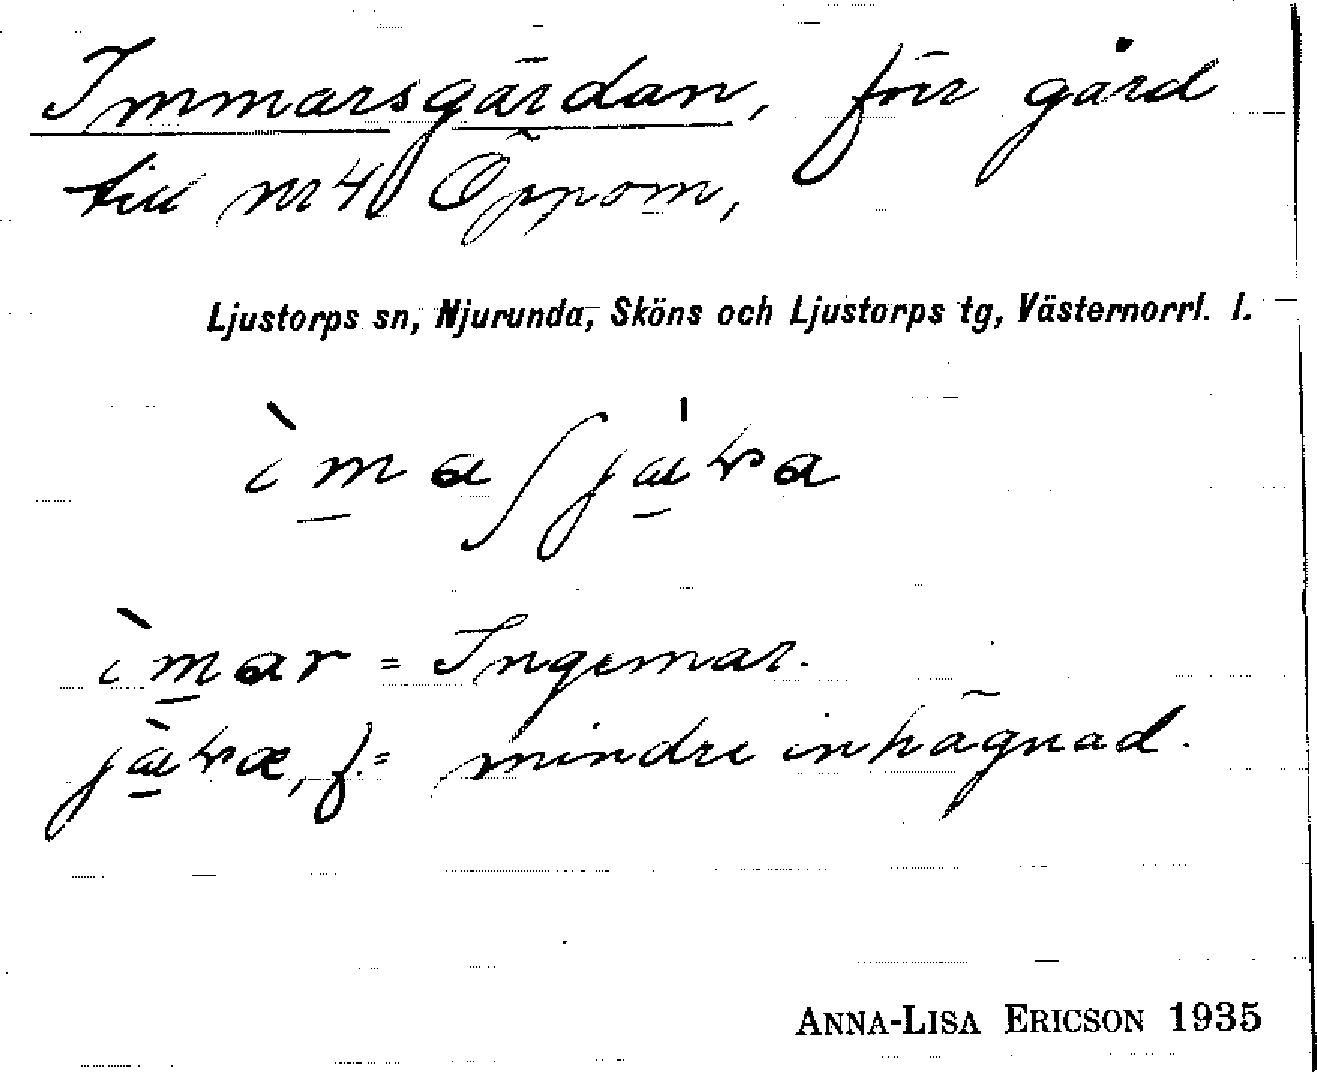 Immarsgärdan, för gård
till nr 4 Öppom,
Ljustorps sn, Njurunda, Sköns och Ljustorps tg, Västernorrl. l.
ìmaʃja
ìmar = Ingemar.
f. = mindre inhägnad.
ANNA-LISA ERICSON 1935